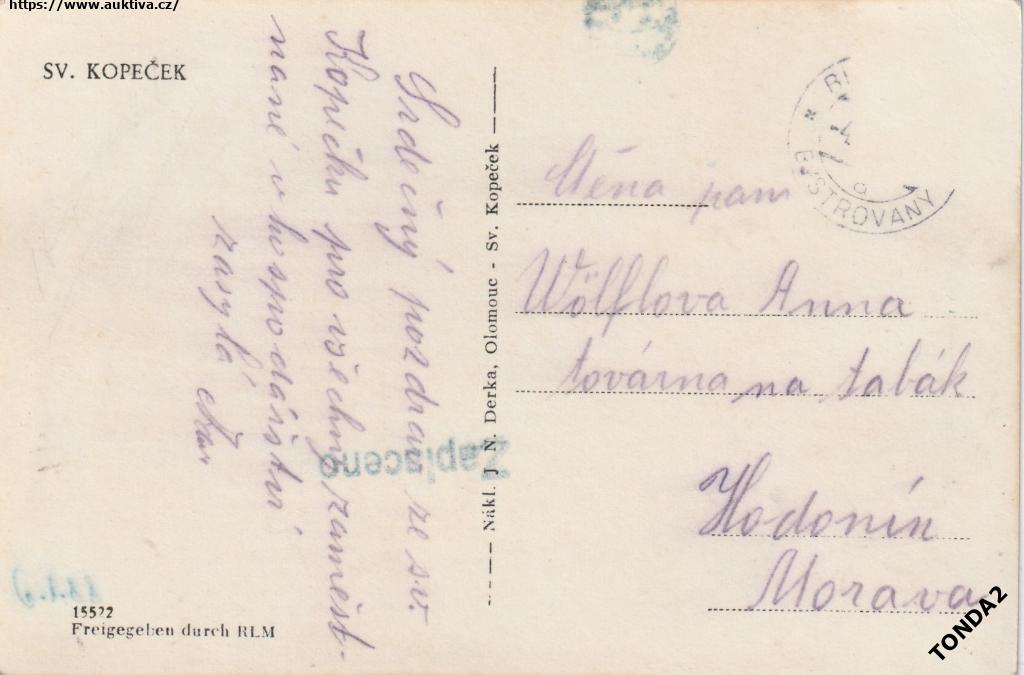 https://www.auktiva.cz/
SV. KOPEČEK
Srdečný pozdrav ze sv.
Kopečku pro všechny zaměst-
nané v hospodářství
zasylá
Zaplaceno
Nákl. J. N. Derka, Olomouc - Sv. Kopeček
BYSTROVANY
Ctěná paní
Wölflova Anna
továrna na tabák
Hodonín
Morava
15522
Freigegeben durch RLM
TONDA2